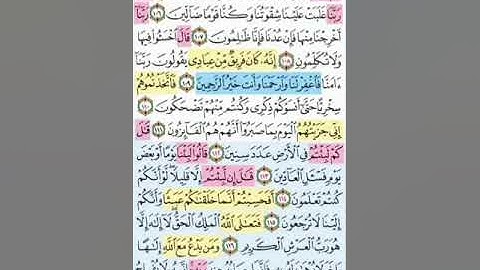 رَبَّنَا غَلَبَتْ عَلَيْنَا شِقْوَتُنَا وَكُنَّا قَوْمًا ضَآلِّينَ ١٠٦ رَبَّنَآ
أَخْرِجْنَا مِنْهَا فَإِنْ عُدْنَا فَإِنَّا ظَٰلِمُونَ ١٠٧ قَالَ ٱخْسَـُٔوا۟ فِيهَا
وَلَا تُكَلِّمُونِ ١٠٨ إِنَّهُۥ كَانَ فَرِيقٌ مِّنْ عِبَادِى يَقُولُونَ رَبَّنَآ
ءَامَنَّا فَٱغْفِرْ لَنَا وَٱرْحَمْنَا وَأَنتَ خَيْرُ ٱلرَّٰحِمِينَ ١٠٩ فَٱتَّخَذْتُمُوهُمْ
سِخْرِيًّا حَتَّىٰٓ أَنسَوْكُمْ ذِكْرِى وَكُنتُم مِّنْهُمْ تَضْحَكُونَ ١١٠
إِنِّى جَزَيْتُهُمُ ٱلْيَوْمَ بِمَا صَبَرُوٓا۟ أَنَّهُمْ هُمُ ٱلْفَآئِزُونَ ١١١ قَٰلَ
كَمْ لَبِثْتُمْ فِى ٱلْأَرْضِ عَدَدَ سِنِينَ ١١٢ قَالُوا۟ لَبِثْنَا يَوْمًا أَوْ بَعْضَ
يَوْمٍ فَسْـَٔلِ ٱلْعَآدِّينَ ١١٣ قَٰلَ إِن لَّبِثْتُمْ إِلَّا قَلِيلًا لَّوْ أَنَّكُمْ
كُنتُمْ تَعْلَمُونَ ١١٤ أَفَحَسِبْتُمْ أَنَّمَا خَلَقْنَٰكُمْ عَبَثًا وَأَنَّكُمْ
إِلَيْنَا لَا تُرْجَعُونَ ١١٥ فَتَعَٰلَى ٱللَّهُ ٱلْمَلِكُ ٱلْحَقُّ لَآ إِلَٰهَ إِلَّا
هُوَ رَبُّ ٱلْعَرْشِ ٱلْكَرِيمِ ١١٦ وَمَن يَدْعُ مَعَ ٱللَّهِ إِلَٰهًا